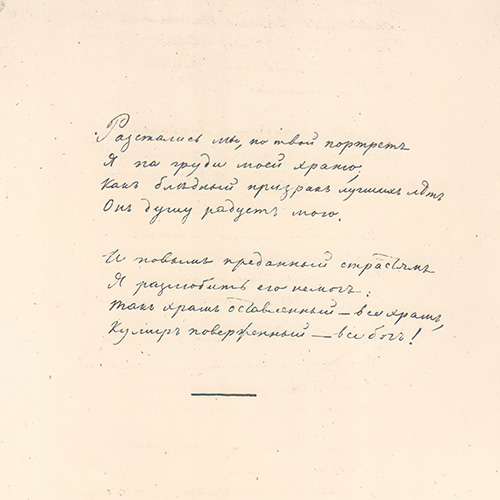 Разстались мы, но твой портретъ
Я на груди моей храню:
Какъ блѣдный призракъ лучшихъ лѣтъ
Онъ душу радуетъ мою.
И новымъ преданный страстямъ
Я разлюбить его немогъ:
Такъ храмъ оставленный – все храмъ,
Кумиръ поверженный – все богъ!